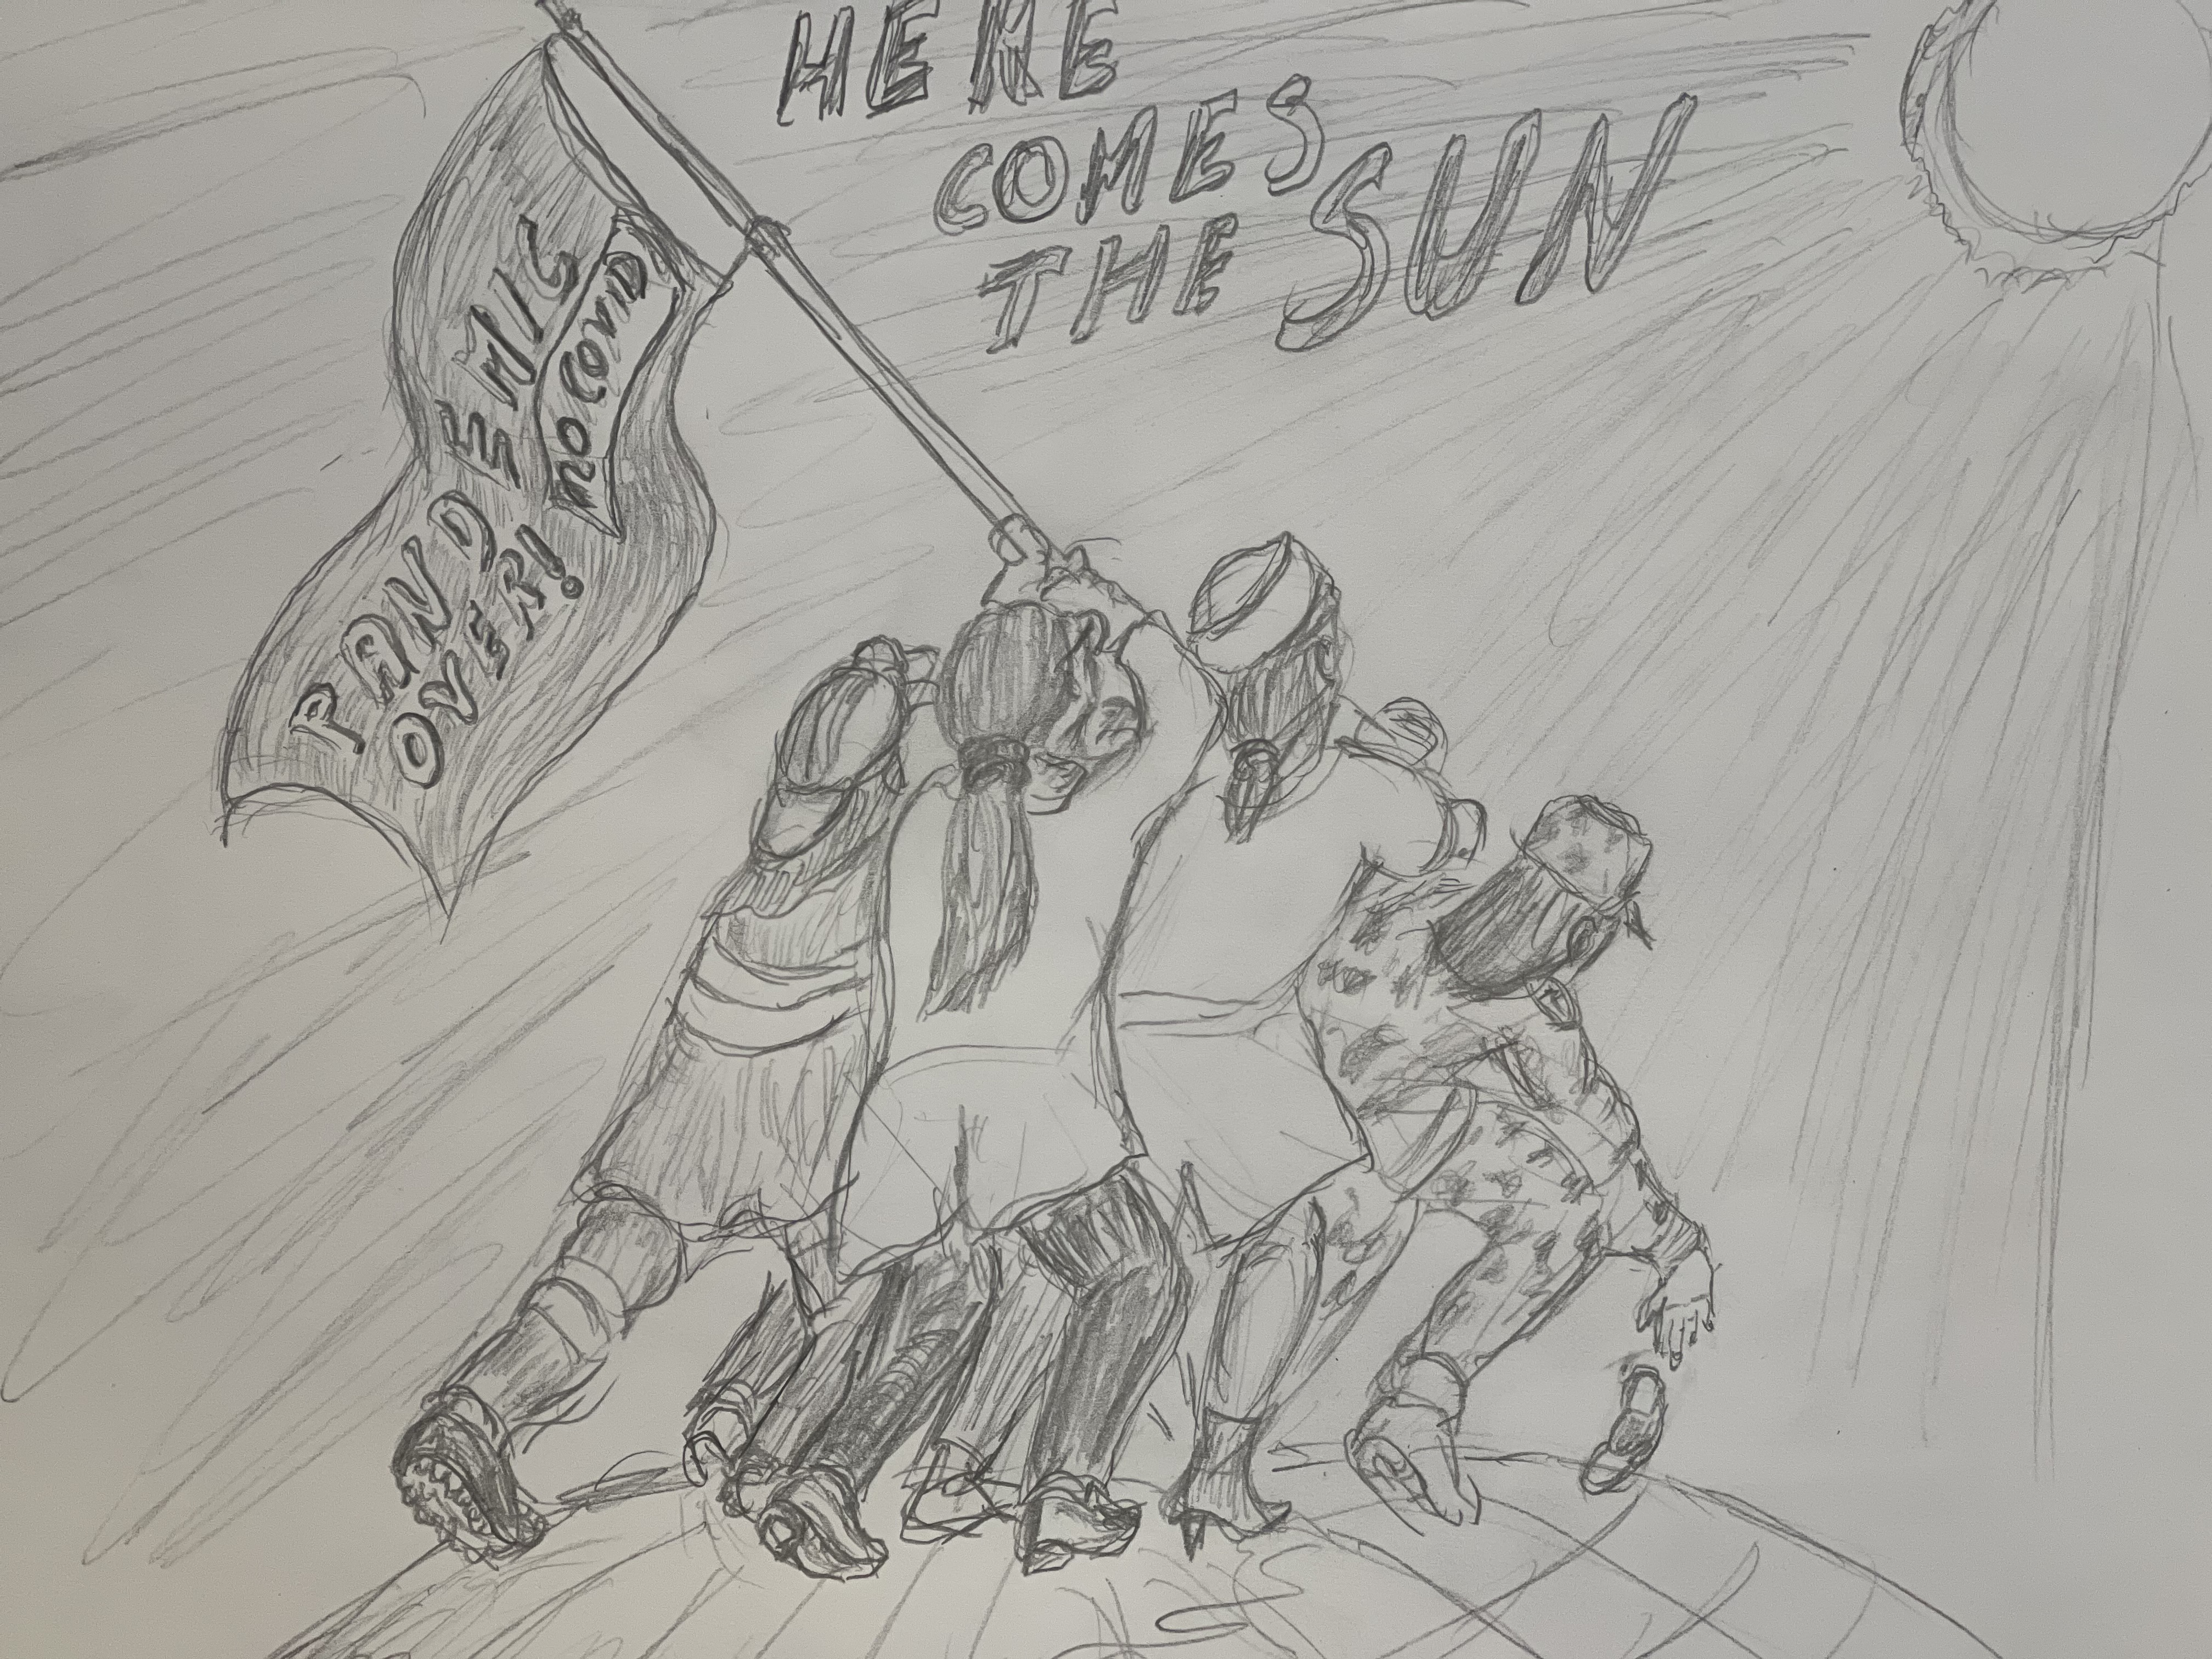 HERE
COMES
THE SUN
PANDEMIC
OVER!
NO COVID